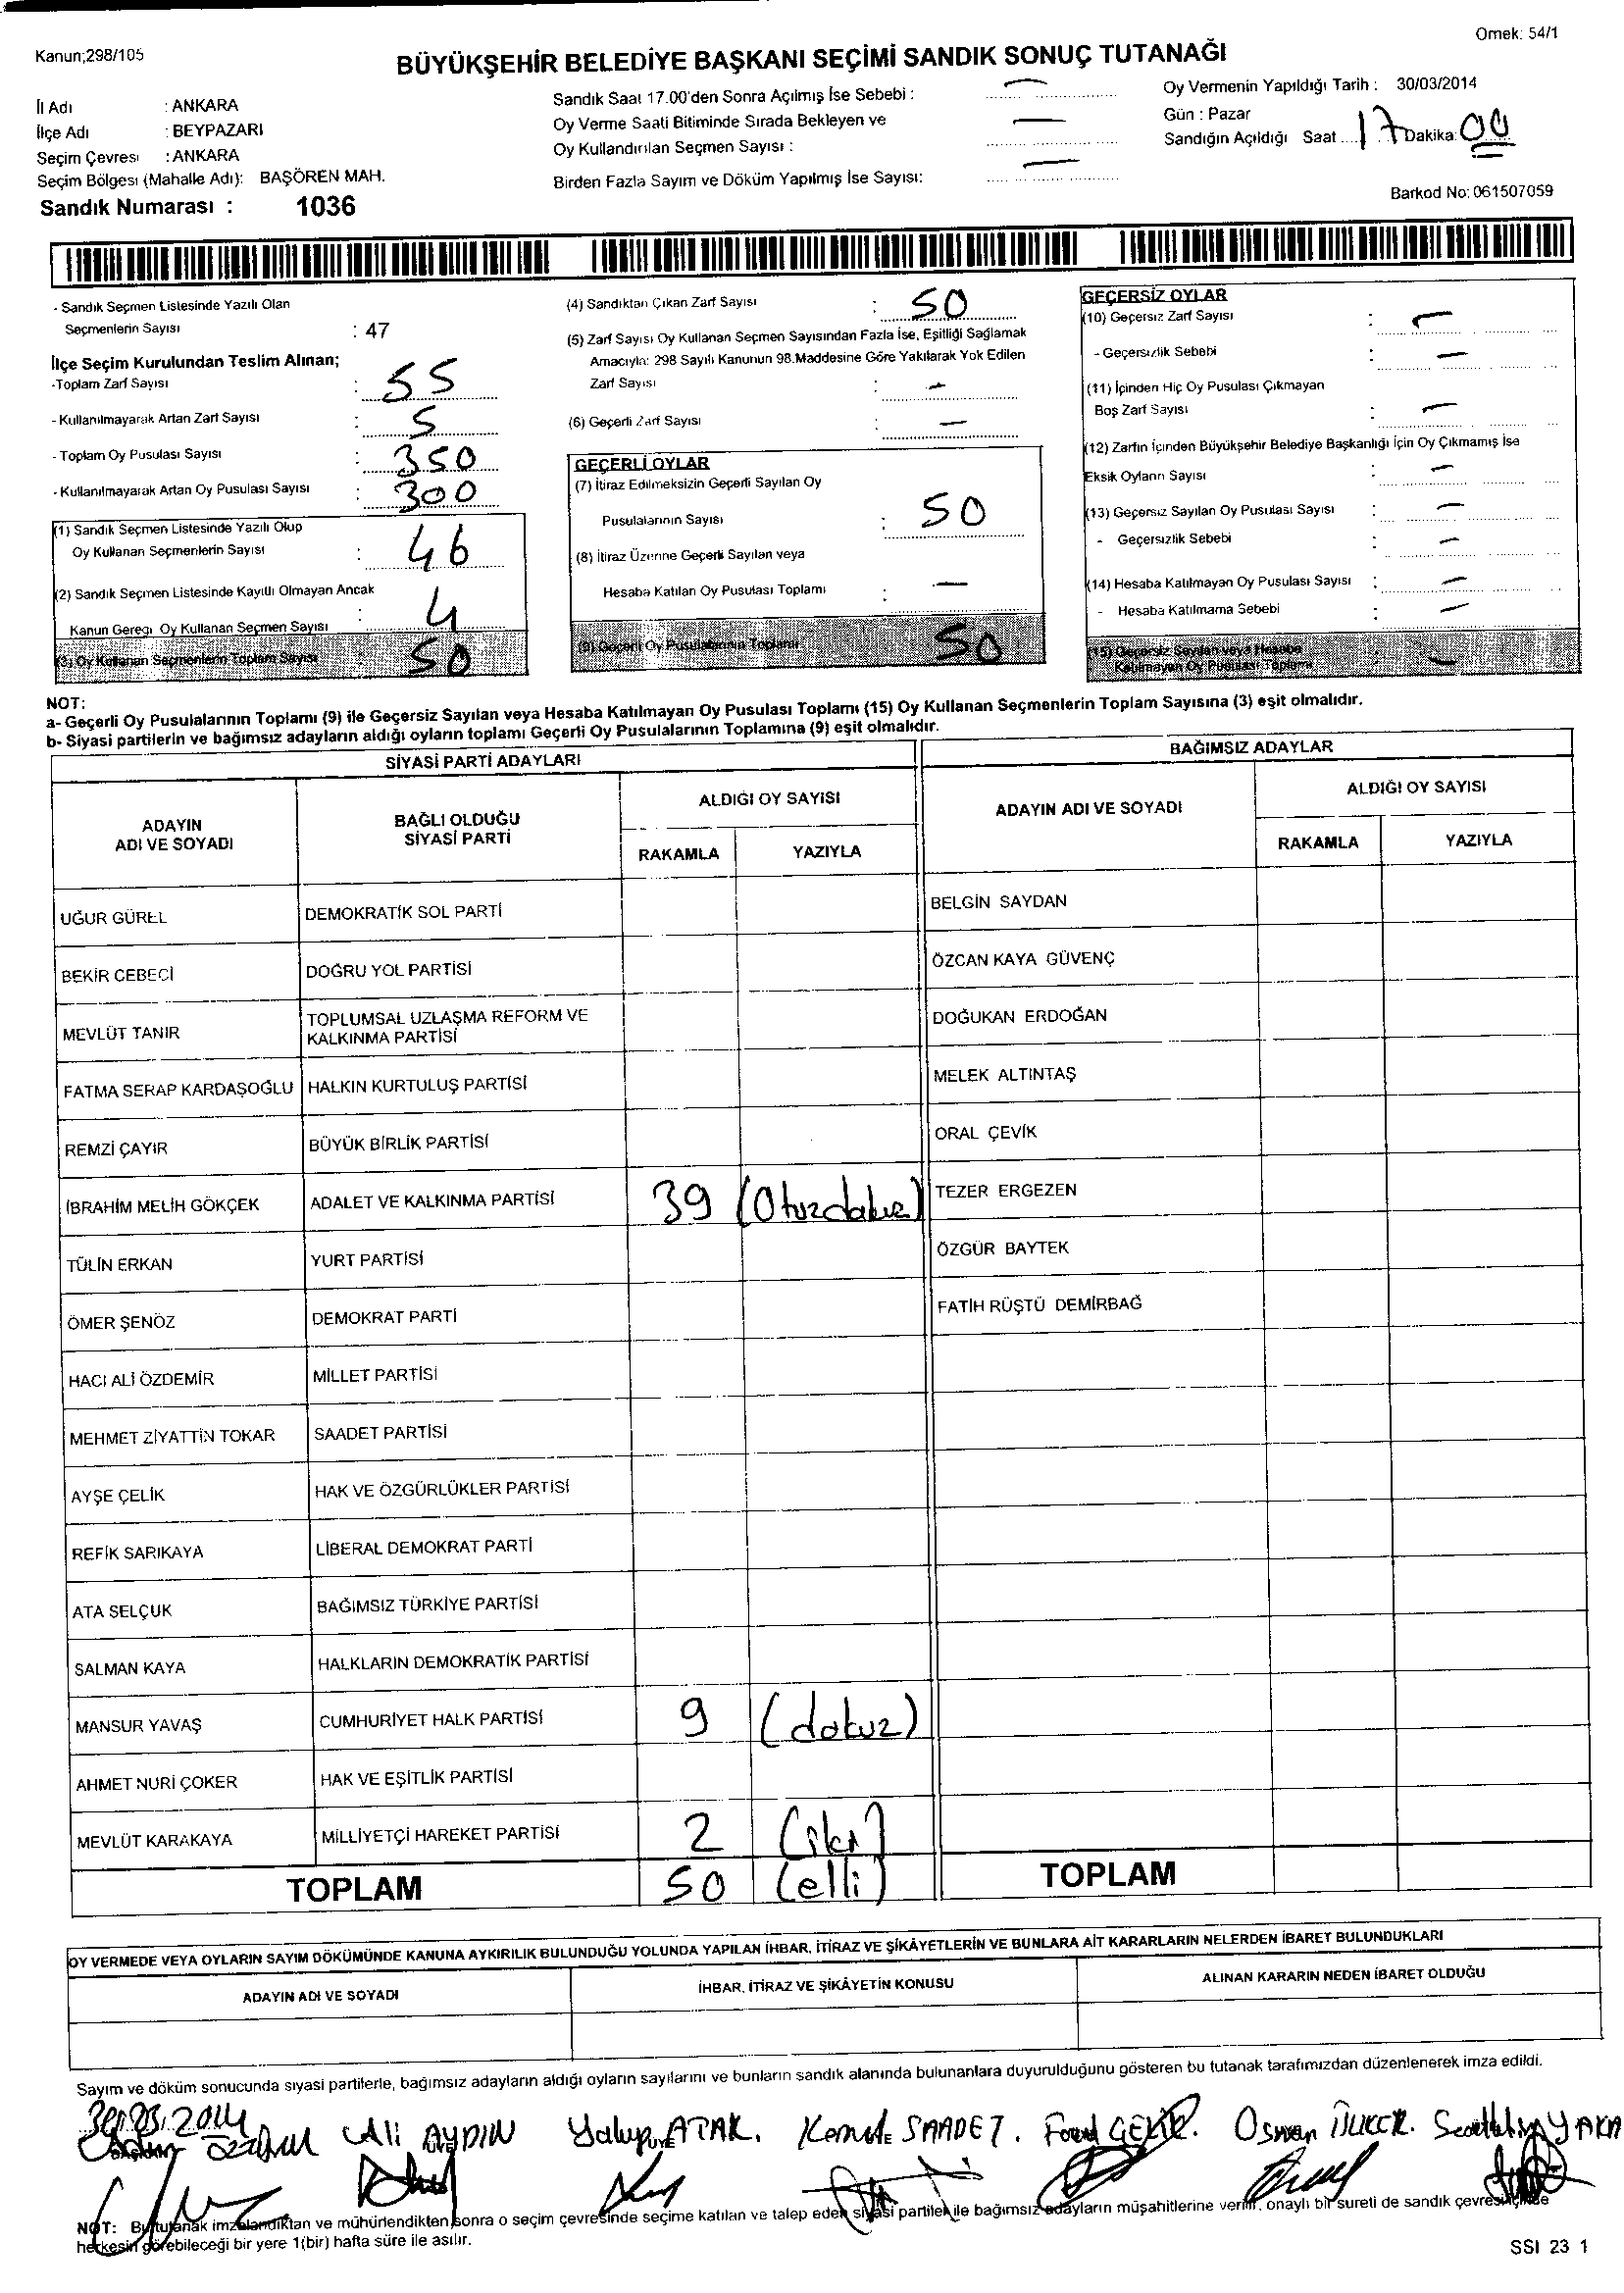 Kanun;298/105
Ornek: 54/1
BÜYÜKŞEHİR BELEDİYE BAŞKANI SEÇİMİ SANDIK SONUÇ TUTANAĞI
İl Adı : ANKARA
İlçe Adı : BEYPAZARI
Seçim Çevresi : ANKARA
Seçim Bölgesi (Mahalle Adı): BAŞÖREN MAH.
Sandık Numarası : 1036
Sandık Saat 17.00'den Sonra Açılmış İse Sebebi : —
Oy Verme Saati Bitiminde Sırada Bekleyen ve
Oy Kullandırılan Seçmen Sayısı : —
Birden Fazla Sayım ve Döküm Yapılmış İse Sayısı: —
Oy Vermenin Yapıldığı Tarih : 30/03/2014
Gün : Pazar
Sandığın Açıldığı Saat 17 Dakika: 00
Barkod No: 061507059
- Sandık Seçmen Listesinde Yazılı Olan
Seçmenlerin Sayısı : 47
İlçe Seçim Kurulundan Teslim Alınan;
-Toplam Zarf Sayısı : 55
- Kullanılmayarak Artan Zarf Sayısı : 5
- Toplam Oy Pusulası Sayısı : 350
- Kullanılmayarak Artan Oy Pusulası Sayısı : 300
(1) Sandık Seçmen Listesinde Yazılı Olup
Oy Kullanan Seçmenlerin Sayısı : 46
(2) Sandık Seçmen Listesinde Kayıtlı Olmayan Ancak
Kanun Gereği Oy Kullanan Seçmen Sayısı : 4
(3) Oy Kullanan Seçmenlerin Toplam Sayısı 50
(4) Sandıktan Çıkan Zarf Sayısı : 50
(5) Zarf Sayısı Oy Kullanan Seçmen Sayısından Fazla İse, Eşitliği Sağlamak
Amacıyla: 298 Sayılı Kanunun 98.Maddesine Göre Yakılarak Yok Edilen
Zarf Sayısı : —
(6) Geçerli Zarf Sayısı : —
GEÇERLİ OYLAR
(7) İtiraz Edilmeksizin Geçerli Sayılan Oy
Pusulalarının Sayısı : 50
(8) İtiraz Üzerine Geçerli Sayılan veya
Hesaba Katılan Oy Pusulası Toplamı : —
(9) Geçerli Oy Pusulalarının Toplamı 50
GEÇERSİZ OYLAR
(10) Geçersiz Zarf Sayısı : —
- Geçersizlik Sebebi : —
(11) İçinden Hiç Oy Pusulası Çıkmayan
Boş Zarf Sayısı : —
(12) Zarfın İçinden Büyükşehir Belediye Başkanlığı İçin Oy Çıkmamış İse
Eksik Oyların Sayısı : —
(13) Geçersiz Sayılan Oy Pusulası Sayısı : —
- Geçersizlik Sebebi : —
(14) Hesaba Katılmayan Oy Pusulası Sayısı : —
- Hesaba Katılmama Sebebi : —
(15) Geçersiz Sayılan veya Hesaba
Katılmayan Oy Pusulası Toplamı —
NOT:
a- Geçerli Oy Pusulalarının Toplamı (9) ile Geçersiz Sayılan veya Hesaba Katılmayan Oy Pusulası Toplamı (15) Oy Kullanan Seçmenlerin Toplam Sayısına (3) eşit olmalıdır.
b- Siyasi partilerin ve bağımsız adayların aldığı oyların toplamı Geçerli Oy Pusulalarının Toplamına (9) eşit olmalıdır.
SİYASİ PARTİ ADAYLARI
BAĞIMSIZ ADAYLAR
ADAYIN ADI VE SOYADI
BAĞLI OLDUĞU SİYASİ PARTİ
ALDIĞI OY SAYISI
RAKAMLA YAZIYLA
ADAYIN ADI VE SOYADI
ALDIĞI OY SAYISI
RAKAMLA YAZIYLA
UĞUR GÜREL DEMOKRATİK SOL PARTİ BELGİN SAYDAN
BEKİR CEBECİ DOĞRU YOL PARTİSİ ÖZCAN KAYA GÜVENÇ
MEVLÜT TANIR TOPLUMSAL UZLAŞMA REFORM VE KALKINMA PARTİSİ DOĞUKAN ERDOĞAN
FATMA SERAP KARDAŞOĞLU HALKIN KURTULUŞ PARTİSİ MELEK ALTINTAŞ
REMZİ ÇAYIR BÜYÜK BİRLİK PARTİSİ ORAL ÇEVİK
İBRAHİM MELİH GÖKÇEK ADALET VE KALKINMA PARTİSİ 39 (Otuzdokuz) TEZER ERGEZEN
TÜLİN ERKAN YURT PARTİSİ ÖZGÜR BAYTEK
ÖMER ŞENÖZ DEMOKRAT PARTİ FATİH RÜŞTÜ DEMİRBAĞ
HACI ALİ ÖZDEMİR MİLLET PARTİSİ
MEHMET ZİYATTİN TOKAR SAADET PARTİSİ
AYŞE ÇELİK HAK VE ÖZGÜRLÜKLER PARTİSİ
REFİK SARIKAYA LİBERAL DEMOKRAT PARTİ
ATA SELÇUK BAĞIMSIZ TÜRKİYE PARTİSİ
SALMAN KAYA HALKLARIN DEMOKRATİK PARTİSİ
MANSUR YAVAŞ CUMHURİYET HALK PARTİSİ 9 (dokuz)
AHMET NURİ ÇOKER HAK VE EŞİTLİK PARTİSİ
MEVLÜT KARAKAYA MİLLİYETÇİ HAREKET PARTİSİ 2 (iki)
TOPLAM 50 (elli) TOPLAM
OY VERMEDE VEYA OYLARIN SAYIM DÖKÜMÜNDE KANUNA AYKIRILIK BULUNDUĞU YOLUNDA YAPILAN İHBAR, İTİRAZ VE ŞİKÂYETLERİN VE BUNLARA AİT KARARLARIN NELERDEN İBARET BULUNDUKLARI
ADAYIN ADI VE SOYADI İHBAR, İTİRAZ VE ŞİKÂYETİN KONUSU ALINAN KARARIN NEDEN İBARET OLDUĞU
Sayım ve döküm sonucunda siyasi partilerle, bağımsız adayların aldığı oyların sayılarını ve bunların sandık alanında bulunanlara duyurulduğunu gösteren bu tutanak tarafımızdan düzenlenerek imza edildi.
30.03.2014
Ali AYDIN Yakup ATAK. Kemal SAADET. Osman
NOT: Bu tutanak imzalandıktan ve mühürlendikten sonra o seçim çevresinde seçime katılan ve talep eden siyasi partiler ile bağımsız adayların müşahitlerine verilir, onaylı bir sureti de sandık çevresi içinde
herkesin görebileceği bir yere 1(bir) hafta süre ile asılır.
SSI 23 1